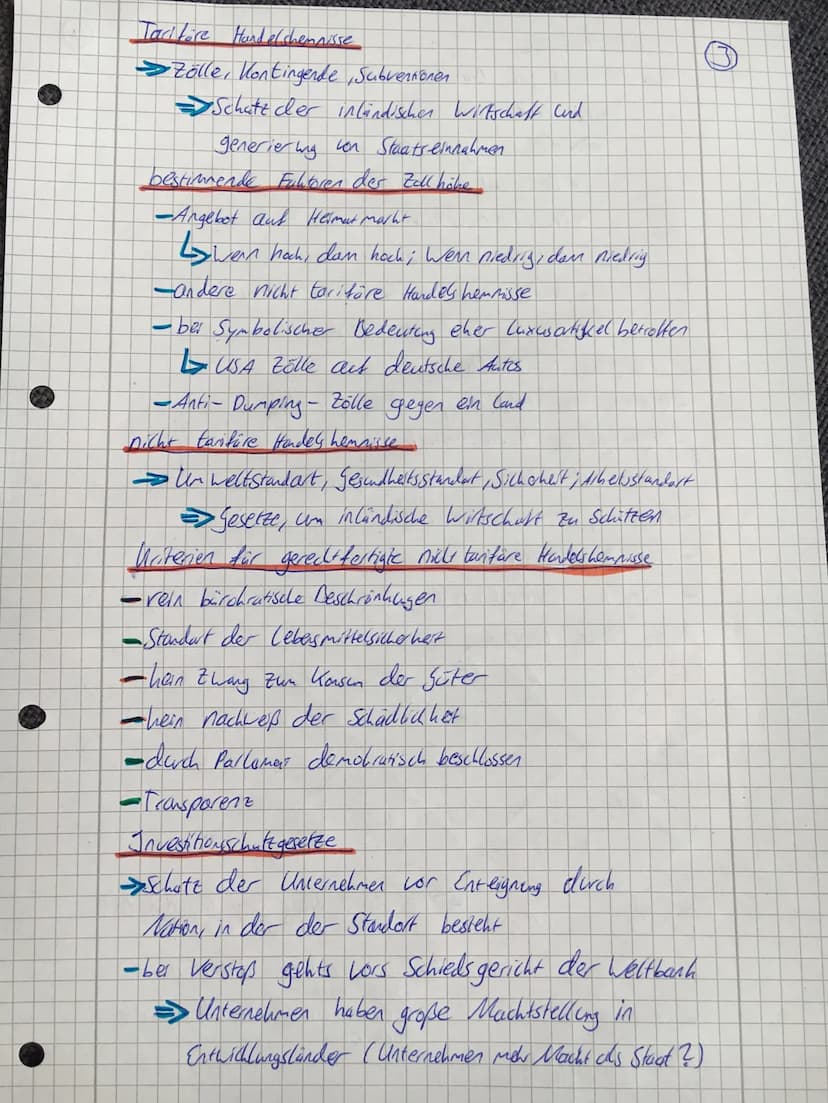 Tarifäre Handelshemnisse
3
⇒ Zölle, Kontingende, Subventionen
⇒ Schutz der inländischen Wirtschaft und
generierung von Staatseinnahmen
bestimmende Faktoren der Zollhöhe
- Angebot auf Heimatmarkt
↳ Wenn hoch, dann hoch; Wenn niedrig, dann niedrig
- andere nicht tarifäre Handelshemnisse
- bei Symbolischer Bedeutung eher Luxusartikel betroffen
↳ USA Zölle auf deutsche Autos
- Anti-Dumping-Zölle gegen ein Land
nicht tarifäre Handelshemnisse
→ Umweltstandart, Gesundheitsstandart, Sicherheit, Arbeitsstandart
⇒ Gesetze, um inländische Wirtschaft zu Schützen
Kriterien für gerechtfertigte nicht tarifäre Handelshemnisse
- rein bürokratische Beschränkungen
- Standart der Lebesmittelsicherheit
- kein Zwang zum Konsum der Güter
- kein nachweiß der Schädlichkeit
- durch Parlament demokratisch beschlossen
- Transparenz
Investitionsschutzgesetze
→ Schutz der Unternehmen vor Enteignung durch
Nation, in der der Standort besteht
- bei Verstoß gehts vors Schiedsgericht der Weltbank
⇒ Unternehmen haben große Machtstellung in
Entwicklungsländer (Unternehmen mehr Macht als Staat?)